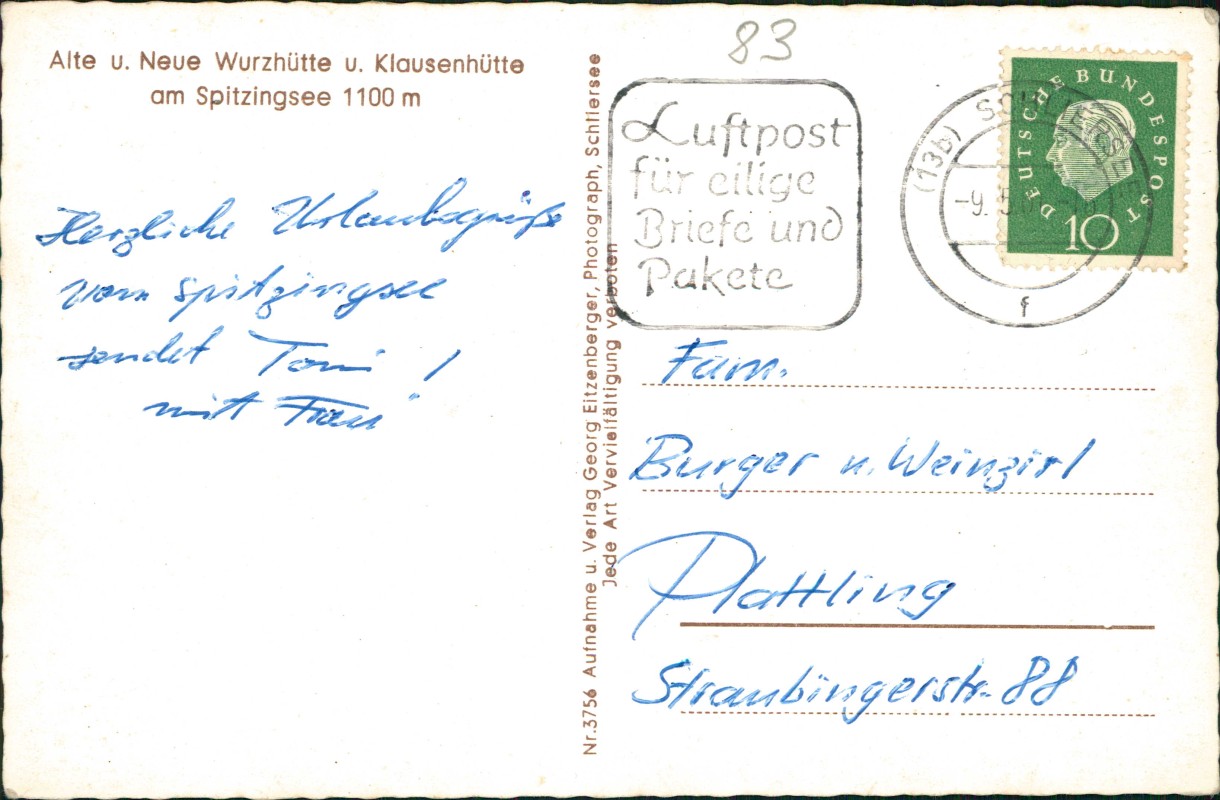 Alte u. Neue Wurzhütte u. Klausenhütte
am Spitzingsee 1100 m
Herzliche Urlaubsgrüße
vom Spitzingsee
sendet Toni
mit Frau!
Nr. 3756 Aufnahme u. Verlag Georg Eitzenberger, Photograph, Schliersee
Jede Art Vervielfältigung verboten
83
Luftpost
für eilige
Briefe und
Pakete
(13b) SCHLIERSEE
-9.
f
DEUTSCHE BUNDESPOST
10
Fam.
Burger u. Weinzirl
Plattling
Straubingerstr. 88